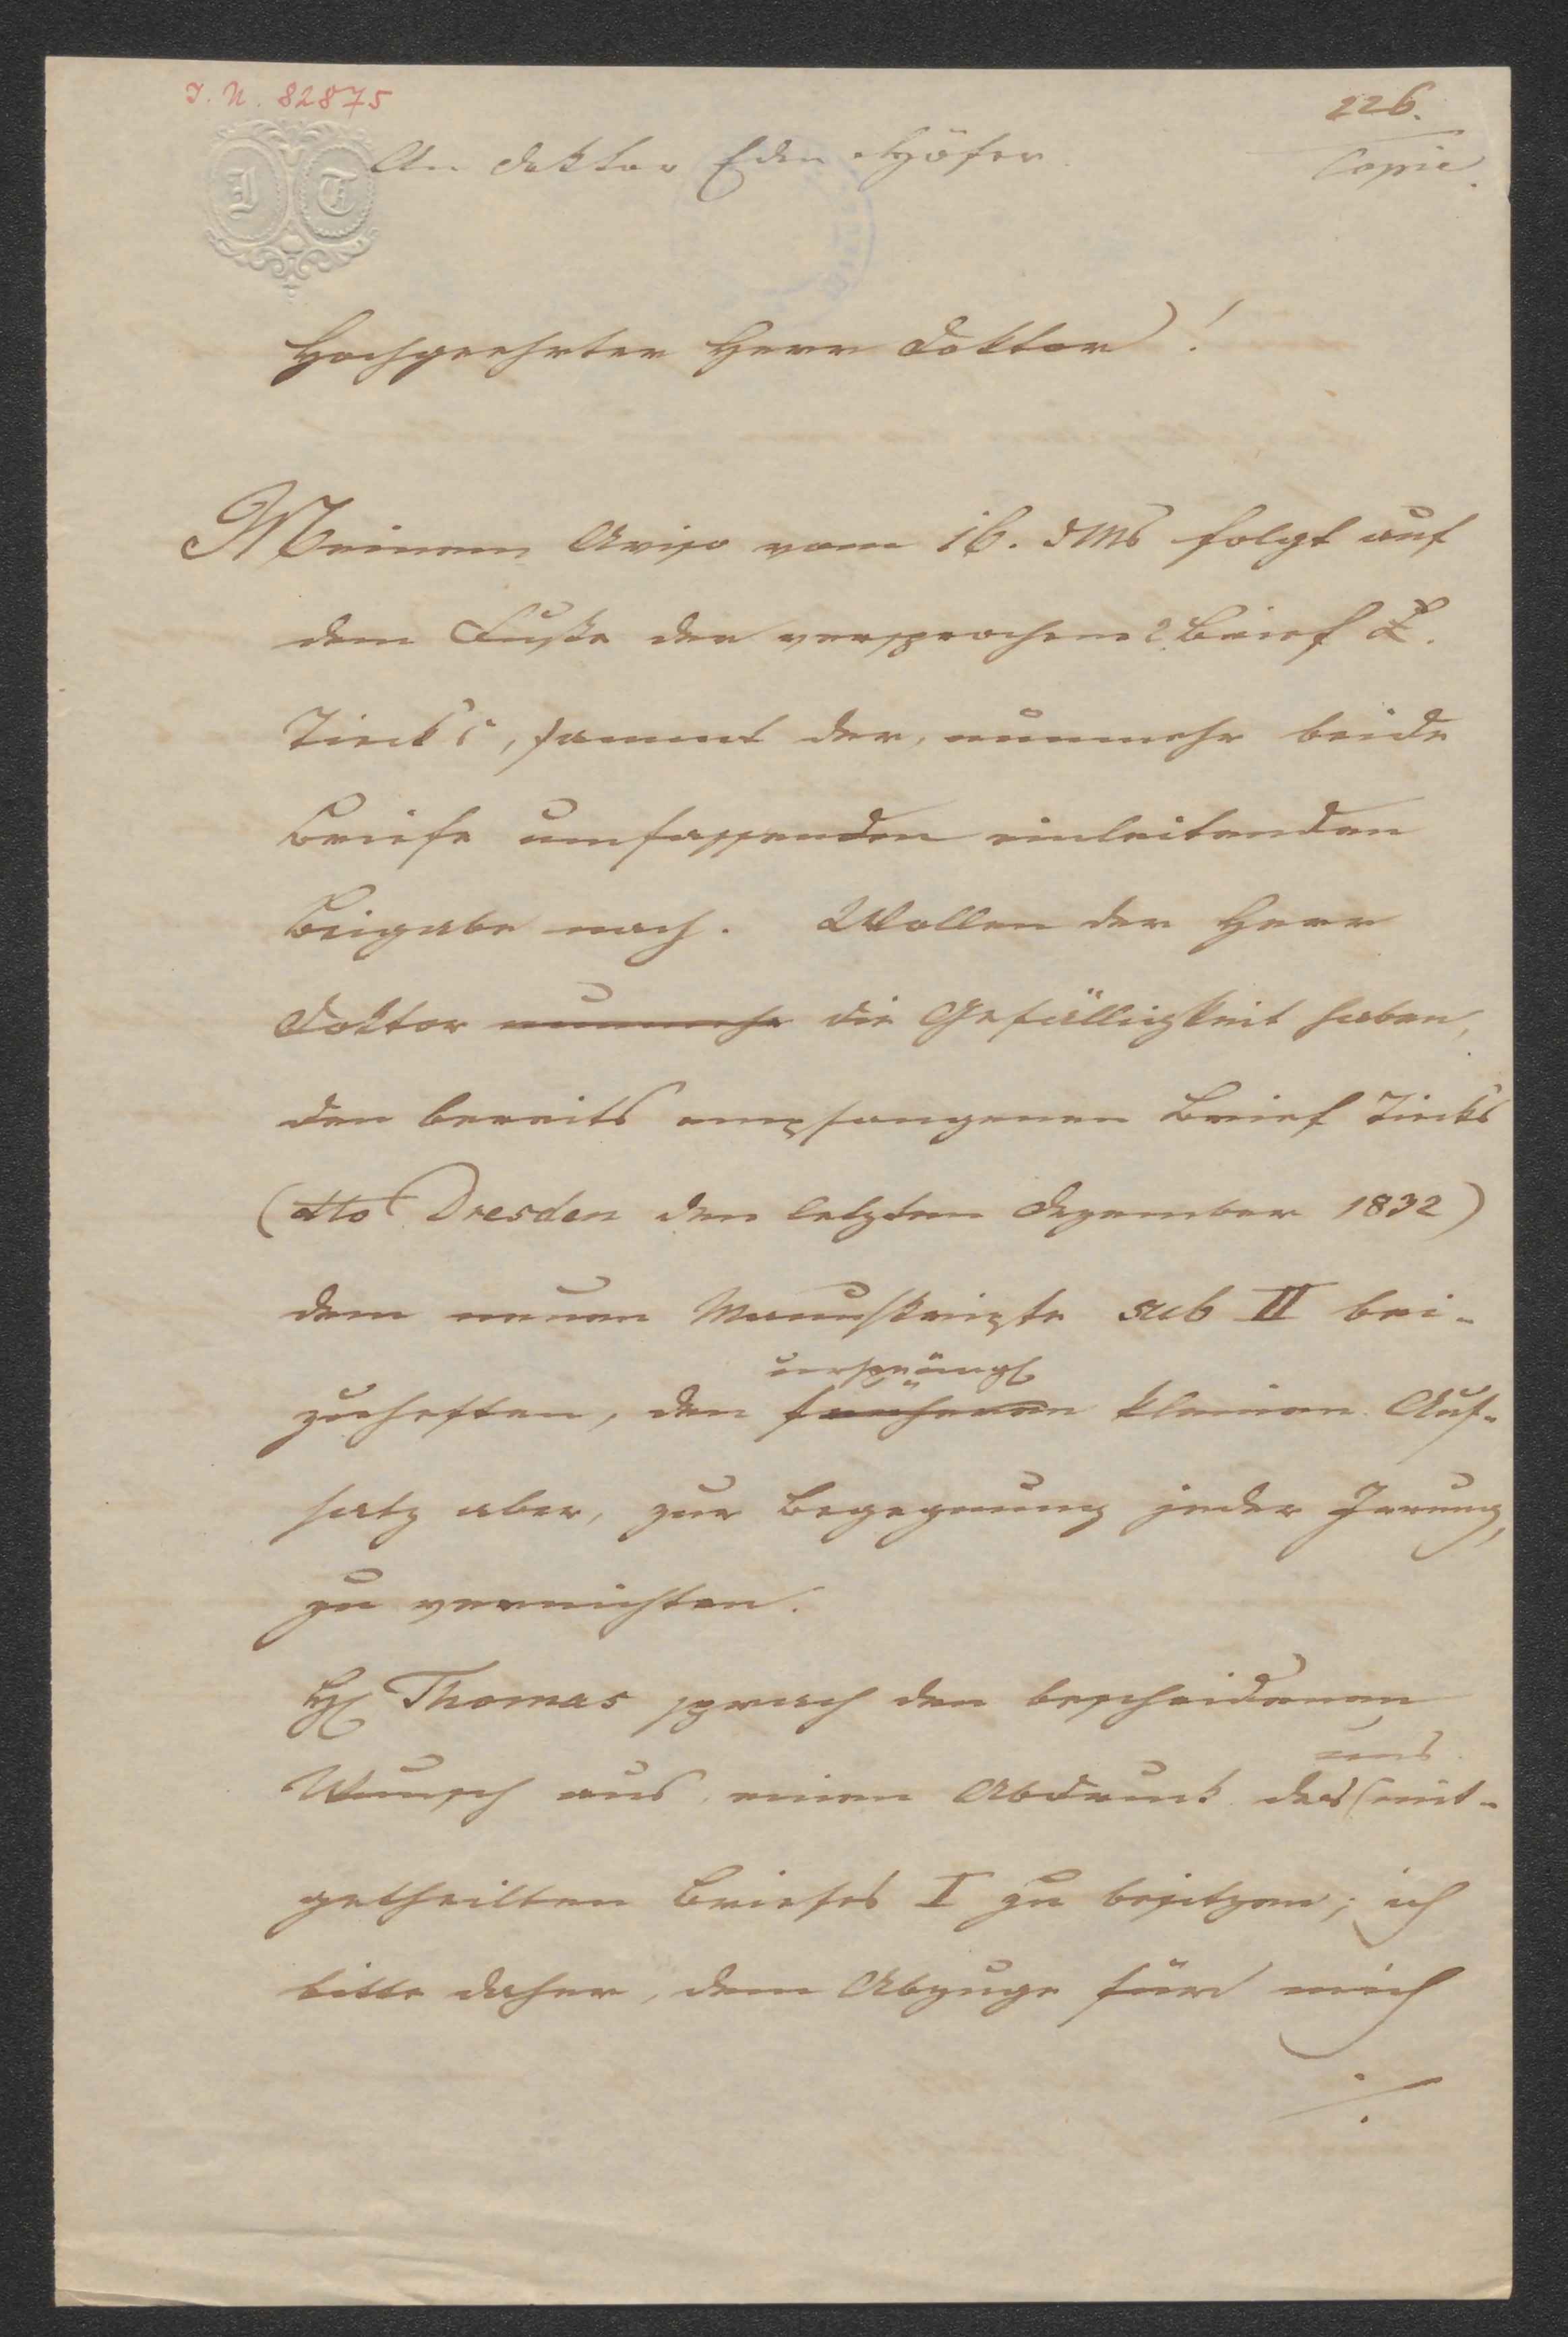 I. N. 82875
226.
Copie.
An Doktor Edm Höfer.
I T
Hochgeehrter Herr Doktor!
Meinem Aviso vom 16. dMs folgt auf
dem Fuße der versprochene 2. Brief L.
Tieck's, sammt der, nunmehr beide
Briefe umfassenden einleitenden
Beigabe nach. Wollen der Herr
Doktor nunmehr die Gefälligkeit haben,
den bereits empfangenen Brief Tiecks
(dto Dresden den letzten Dezember 1832)
dem neuen Manuskripte sub II bei-
ursprüngl
zuheften, den früheren kleinen Auf-
satz aber, zur Begegnung jeder Irrung,
zu vernichten.
H Thomas sprach den bescheidenen
uns
Wunsch aus, einen Abdruck des mit-
getheilten Briefes I zu besitzen; ich
bitte daher, dem Abzuge für mich
./.